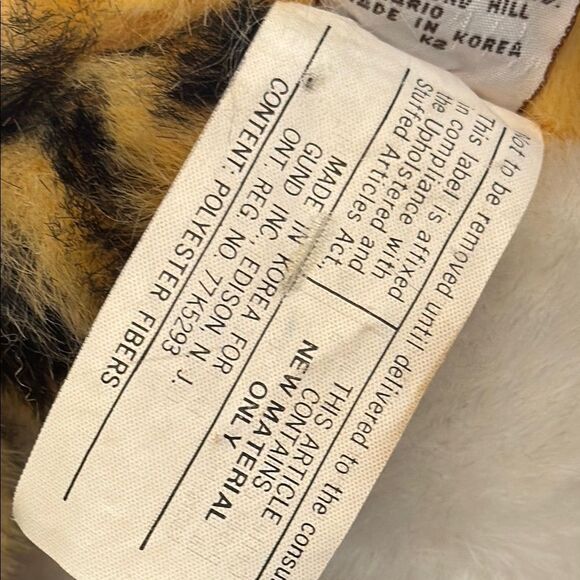 HILL
ERIO
MADE IN KOREA
K2
Not to be removed until delivered to the consu
This label is affixed
in compliance with
the Upholstered and
Stuffed Articles Act.,
THIS ARTICLE
CONTAINS
NEW MATERIAL
ONLY
MADE IN KOREA FOR
GUND INC. EDISON, N. J.
ONT. REG NO. 77K5293
CONTENT: POLYESTER FIBERS